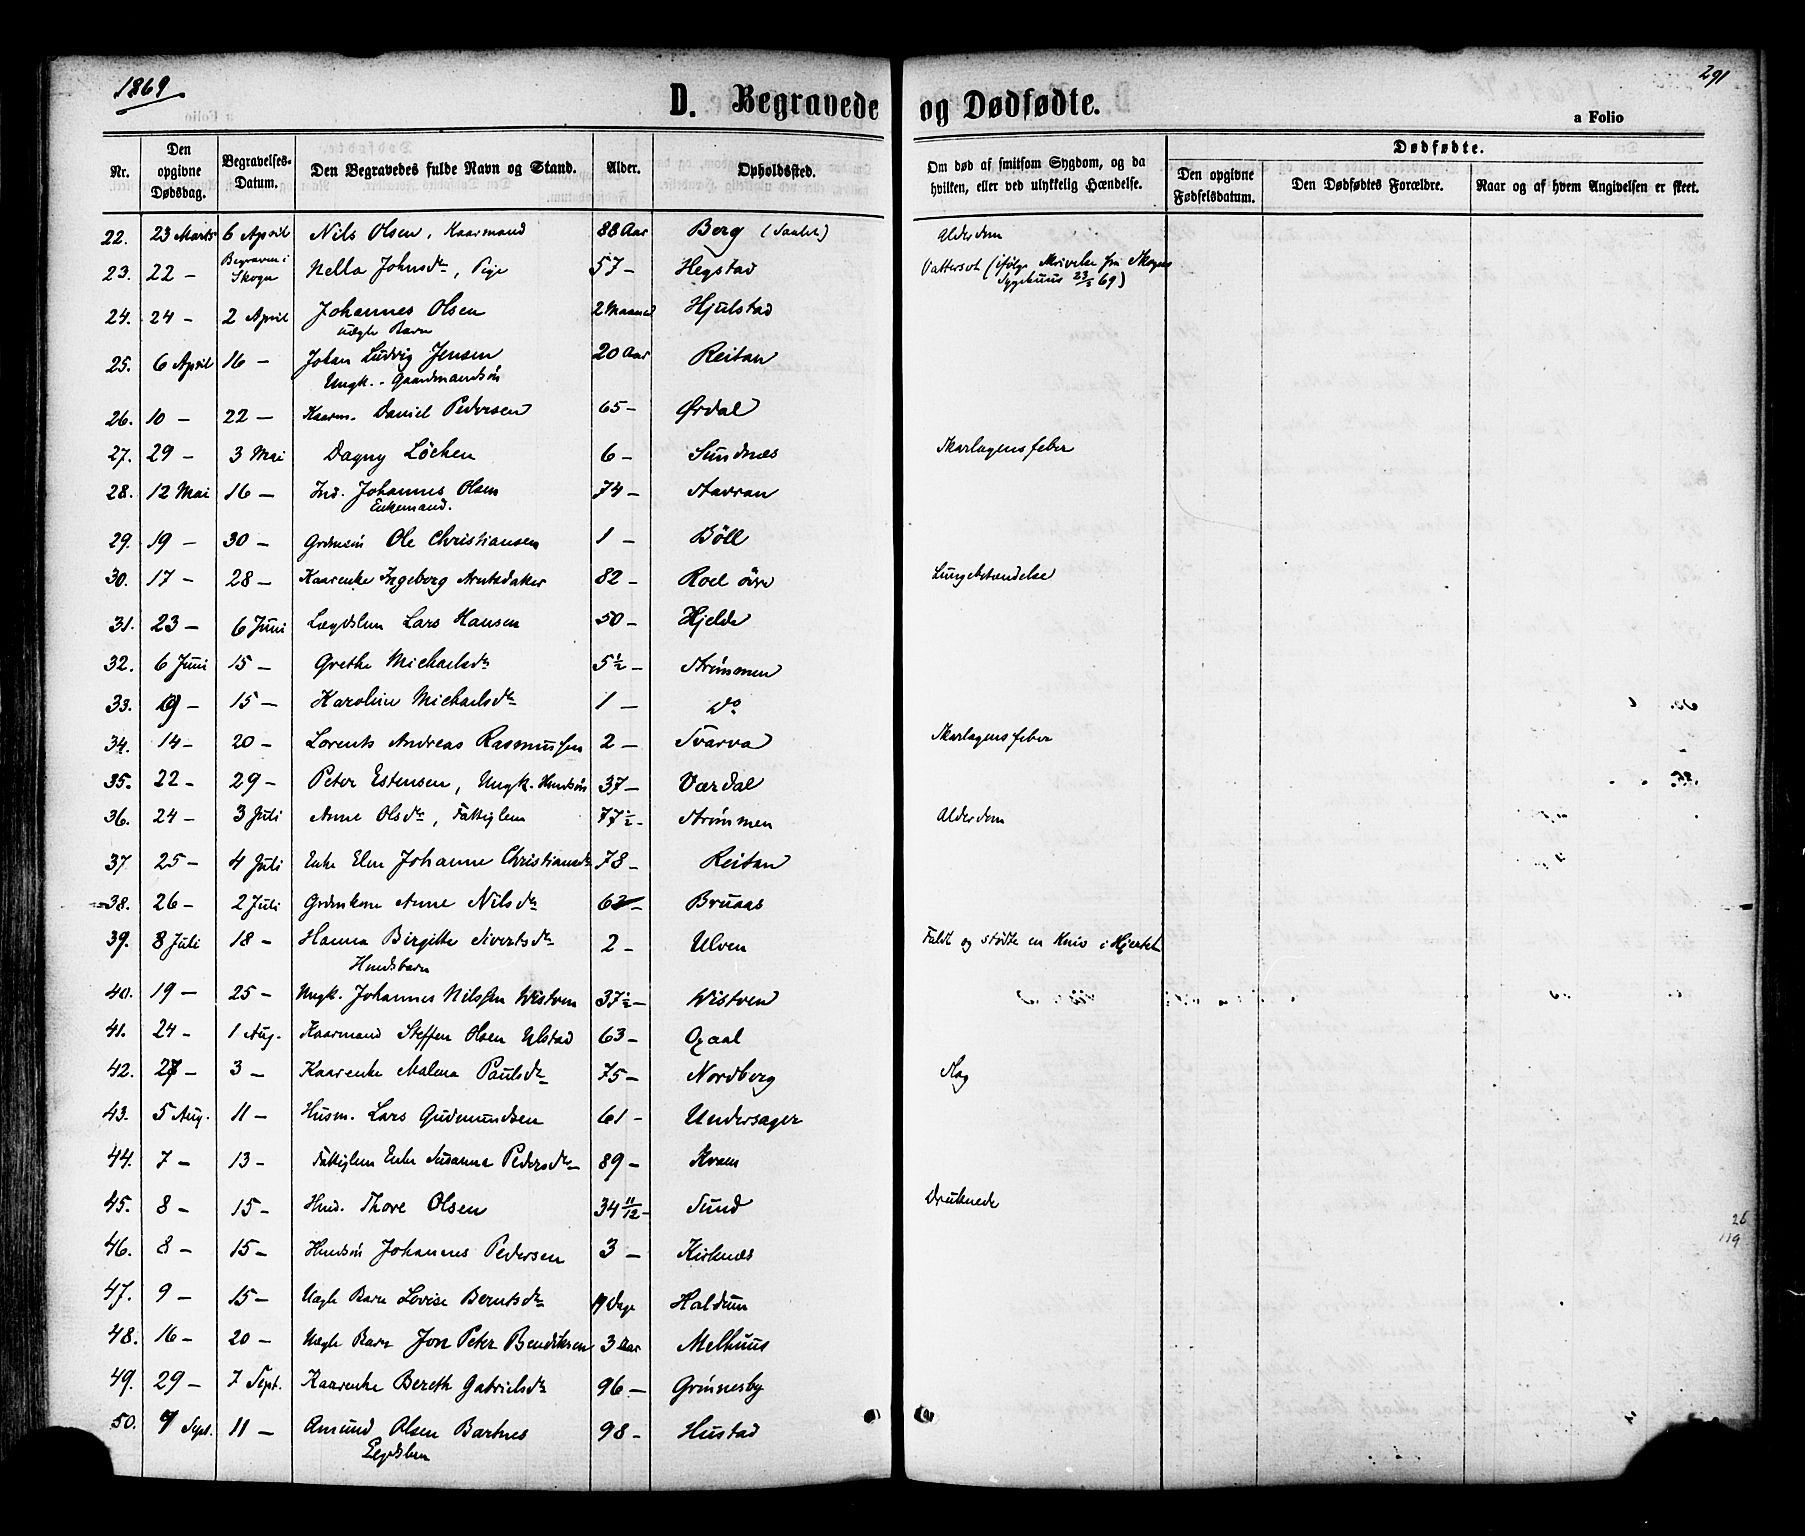 1869
291
D. Begravede og Dødfødte.
a Folio
Nr. Den opgivne Dødsdag. Begravelses-Datum. Den Begravedes fulde Navn og Stand. Alder. Opholdssted. Om død af smitsom Sygdom, og da hvilken, eller ved ulykkelig Hændelse. Dødfødte. Den opgivne Fødselsdatum. Den Dødfødtes Forældre. Naar og af hvem Angivelsen er skeet.
22. 23 Marts 6 April Nils Olsen, Kaarmand 88 Aar Berg Alderdom
23. 22 - Begraven i Skogn Nella Johnsdr, Pige 57 - Hegstad Vattersot (ifølge Skrivelse fra Skogns Sygehuus 23/3 69)
24. 24 - 2 April Johannes Olsen 2 Maaned Hjulstad
uægte Barn
25. 6 April 16 - Johan Ludvig Jensen 20 Aar Reitan
Ungk. - Gaardmandsøn
26. 10 - 22 - Kaarm. Daniel Pedersen 65 - Ørdal
27. 29 - 3 Mai Dagny Löchen 6 - Sundnæs Skarlagensfeber
28. 12 Mai 16 - Ind. Johannes Olsen 74 - Stavran
Enkemand.
29. 19 - 30 - Grdmsøn Ole Christiansen 1 - Böll
30. 17 - 28 - Kaarenke Ingeborg Arntsdatter 82 - Roel övre Lungebetændelse
31. 23 - 6 Juni Lægdslem Lars Hansen 50 - Hjelde
32. 6 Juni 15 - Grethe Michaelsdr 5½ - Strömmen
33. 9 - 15 - Karoline Michaelsdr 1 - do
34. 14 - 20 - Lorents Andreas Rasmussen 2 - Tvarva Skarlagensfeber
35. 22 - 29 - Peter Estensen, Ungk. Husmdsøn 37 - Værdal
36. 24 - 3 Juli Anne Olsdr, Fattiglem 77½ - Strömmen Alderdom
37 25 - 4 Juli Enke Elen Johanne Christiansdr 78 - Reitan
38. 26 - 2 Juli Grdmkone Anne Nilsdr 62 - Bruaas
39. 8 Juli 18 - Hanna Birgitte Sivertsdr 2 - Ulven Faldt og stødte en Kniv i Hjertet
Hmdsbarn
40. 19 - 25 - Ungk. Johannes Nilssen Wistven 37½ - Wistven
41. 24 - 1 Aug. Kaarmand Steffen Olsen Ulstad 63 - Oxaal
42. 27 - 3 - Kaarenke Malena Paulsdr 75 - Nordberg Slag
43. 5 Aug. 11 - Husm. Lars Gudmundsen 61 - Undersager
44. 7 - 13 - Fattiglem Enke Susanna Pedersdr 89 - Kvam
45. 8 - 15 - Hmd. Thore Olsen 34 11/12 - Sund Druknede
46. 8 - 15 - Hmdsøn Johannes Pedersen 3 - Kirknæs
47. 9 - 15 - Uægte Barn Lovise Berntsdr 19 Dage Haldum
48. 16 - 20 - Uægte Barn Jon Peter Bendiksen 3 Aar Melhuus
49. 29 - 7 Sept. Kaarenke Bereth Gabrielsdr 96 - Grönnesby
50. 7 Sept. 11 - Amund Olsen Bartnes 98 - Hustad
Legdslem
26
119